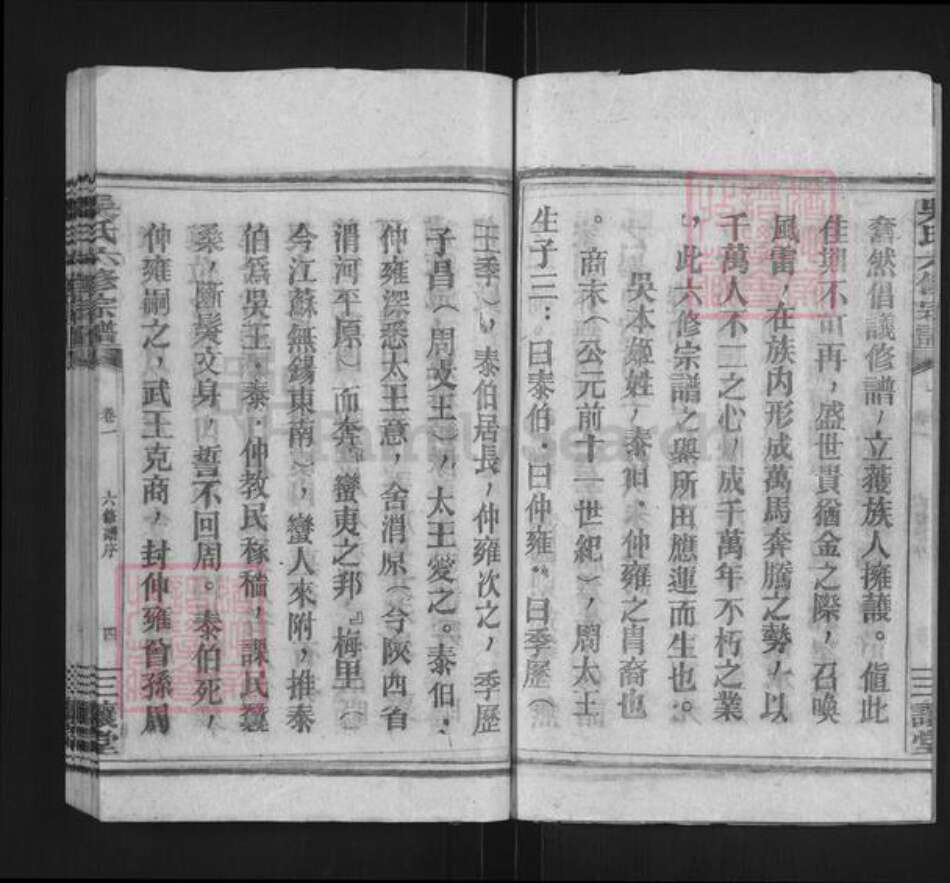 奮然倡議修譜，立獲族人擁護。值此
佳期不可再，盛世貴猶金之際，召喚
風雷，在族内形成萬馬奔騰之勢，以
千萬人不二之心，成千萬年不朽之業
，此六修宗譜之舉所由應運而生也。
吳本姬姓，泰伯．仲雍之胄裔也
。商末（公元前十一世紀），周太王
生子三：曰泰伯．曰仲雍．曰季歷（
王季），泰伯居長，仲雍次之，季歷
子昌（周文王），太王愛之。泰伯．
仲雍深悉太王意，舍渭原（今陝西省
渭河平原）而奔『蠻夷之邦』梅里（
今江蘇無錫東南），蠻人來附，推泰
伯爲吳王，泰．仲教民稼穡，課民蠶
桑，斷髮文身，誓不回周。泰伯死，
仲雍嗣之，武王克商，封仲雍曾孫周
吳氏六修宗譜
卷一
六修譜序
四
三讓堂
FamilySearch